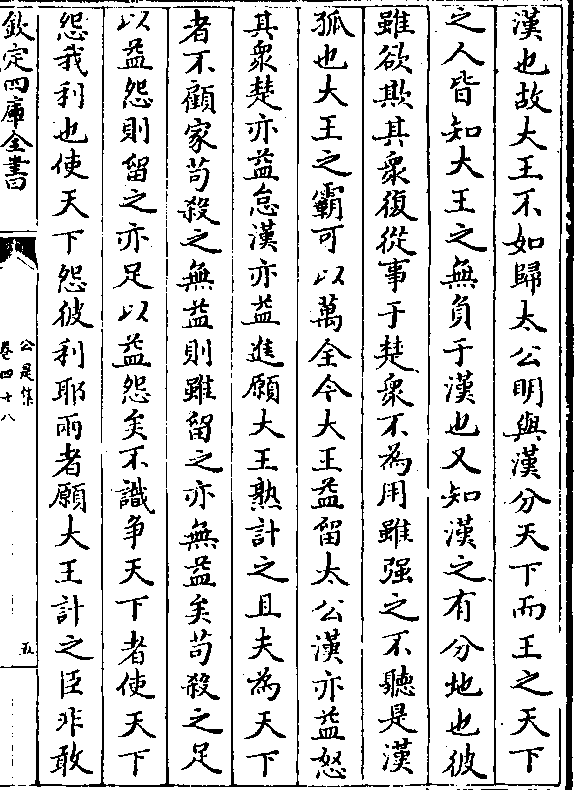 漢也故大王不如歸太公明與漢分天下而王之天下
之人皆知大王之無負于漢也又知漢之有分地也彼
雖欲欺其衆復從事于楚衆不為用雖强之不聽是漢
孤也大王之霸可以萬全今大王益留太公漢亦益怒
其衆楚亦益怠漢亦益進願大王熟計之且夫為天下
者不顧家苟殺之無益則雖留之亦無益矣苟殺之足
以益怨則留之亦足以益怨矣不識争天下者使天下
怨我利也使天下怨彼利耶兩者願大王計之臣非敢
欽定四庫全書
公是集
卷四十八
五